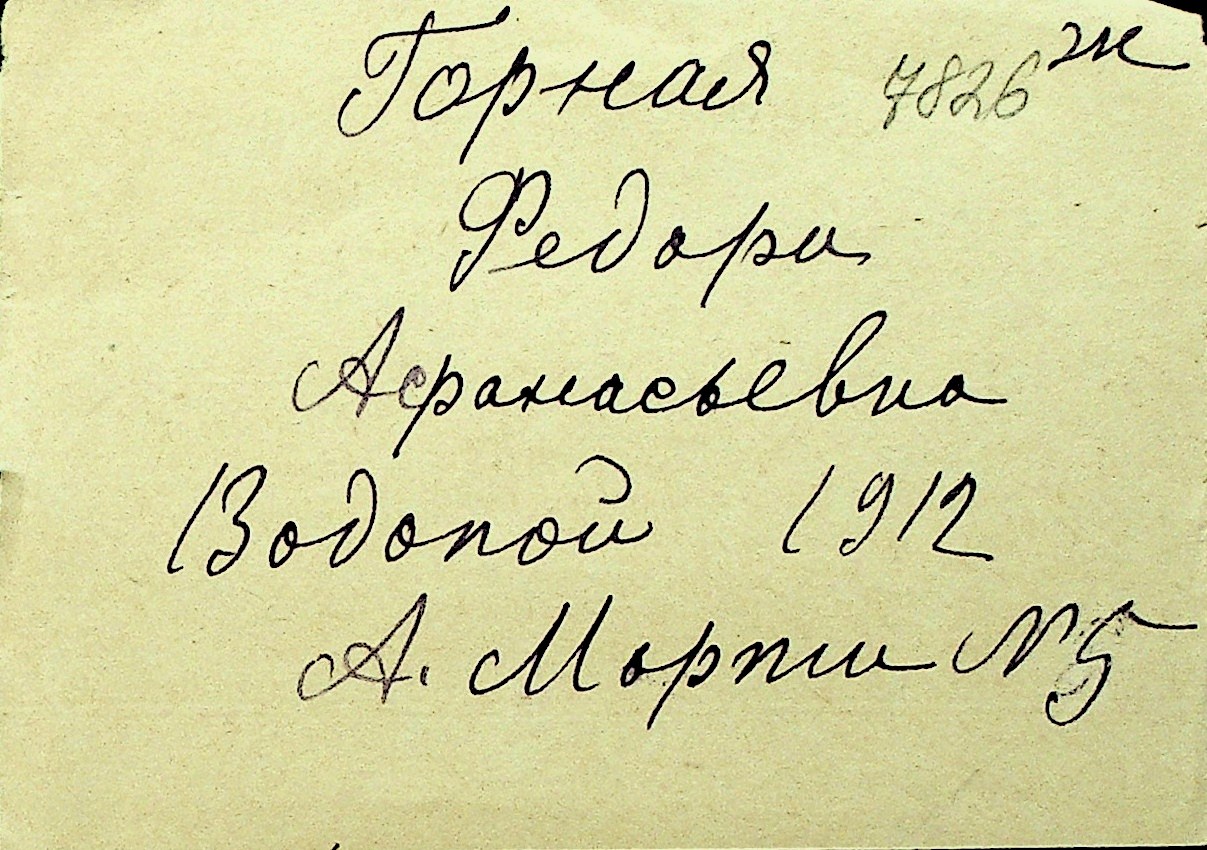 Горная 7826 ж
Федора
Афанасьевна
Водопой 1912
А. Марти N5